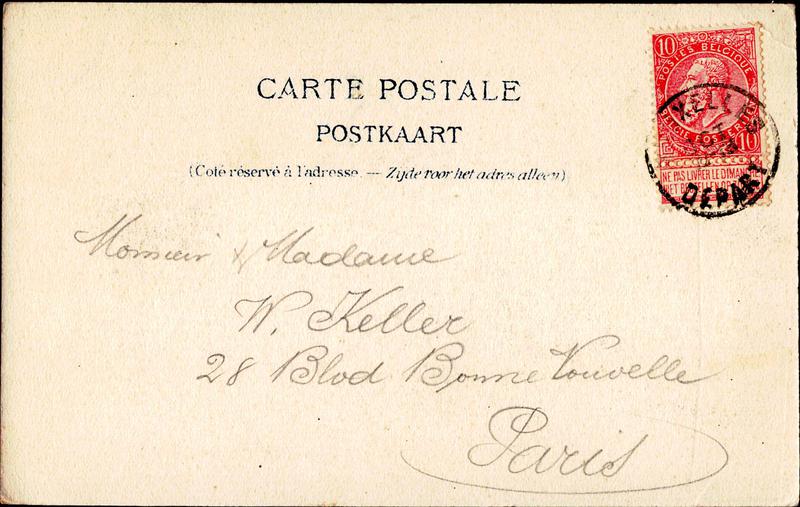 CARTE POSTALE
POSTKAART
(Coté réservé à l'adresse. — Zijde voor het adres alleen)
10
POSTES BELGIQUE
BELGIE POSTERIJEN
10
NE PAS LIVRER LE DIMANCHE
NIET BESTELLEN OP
DEPART
Monsieur & Madame
W. Keller
28 Blvd Bonne Nouvelle
Paris